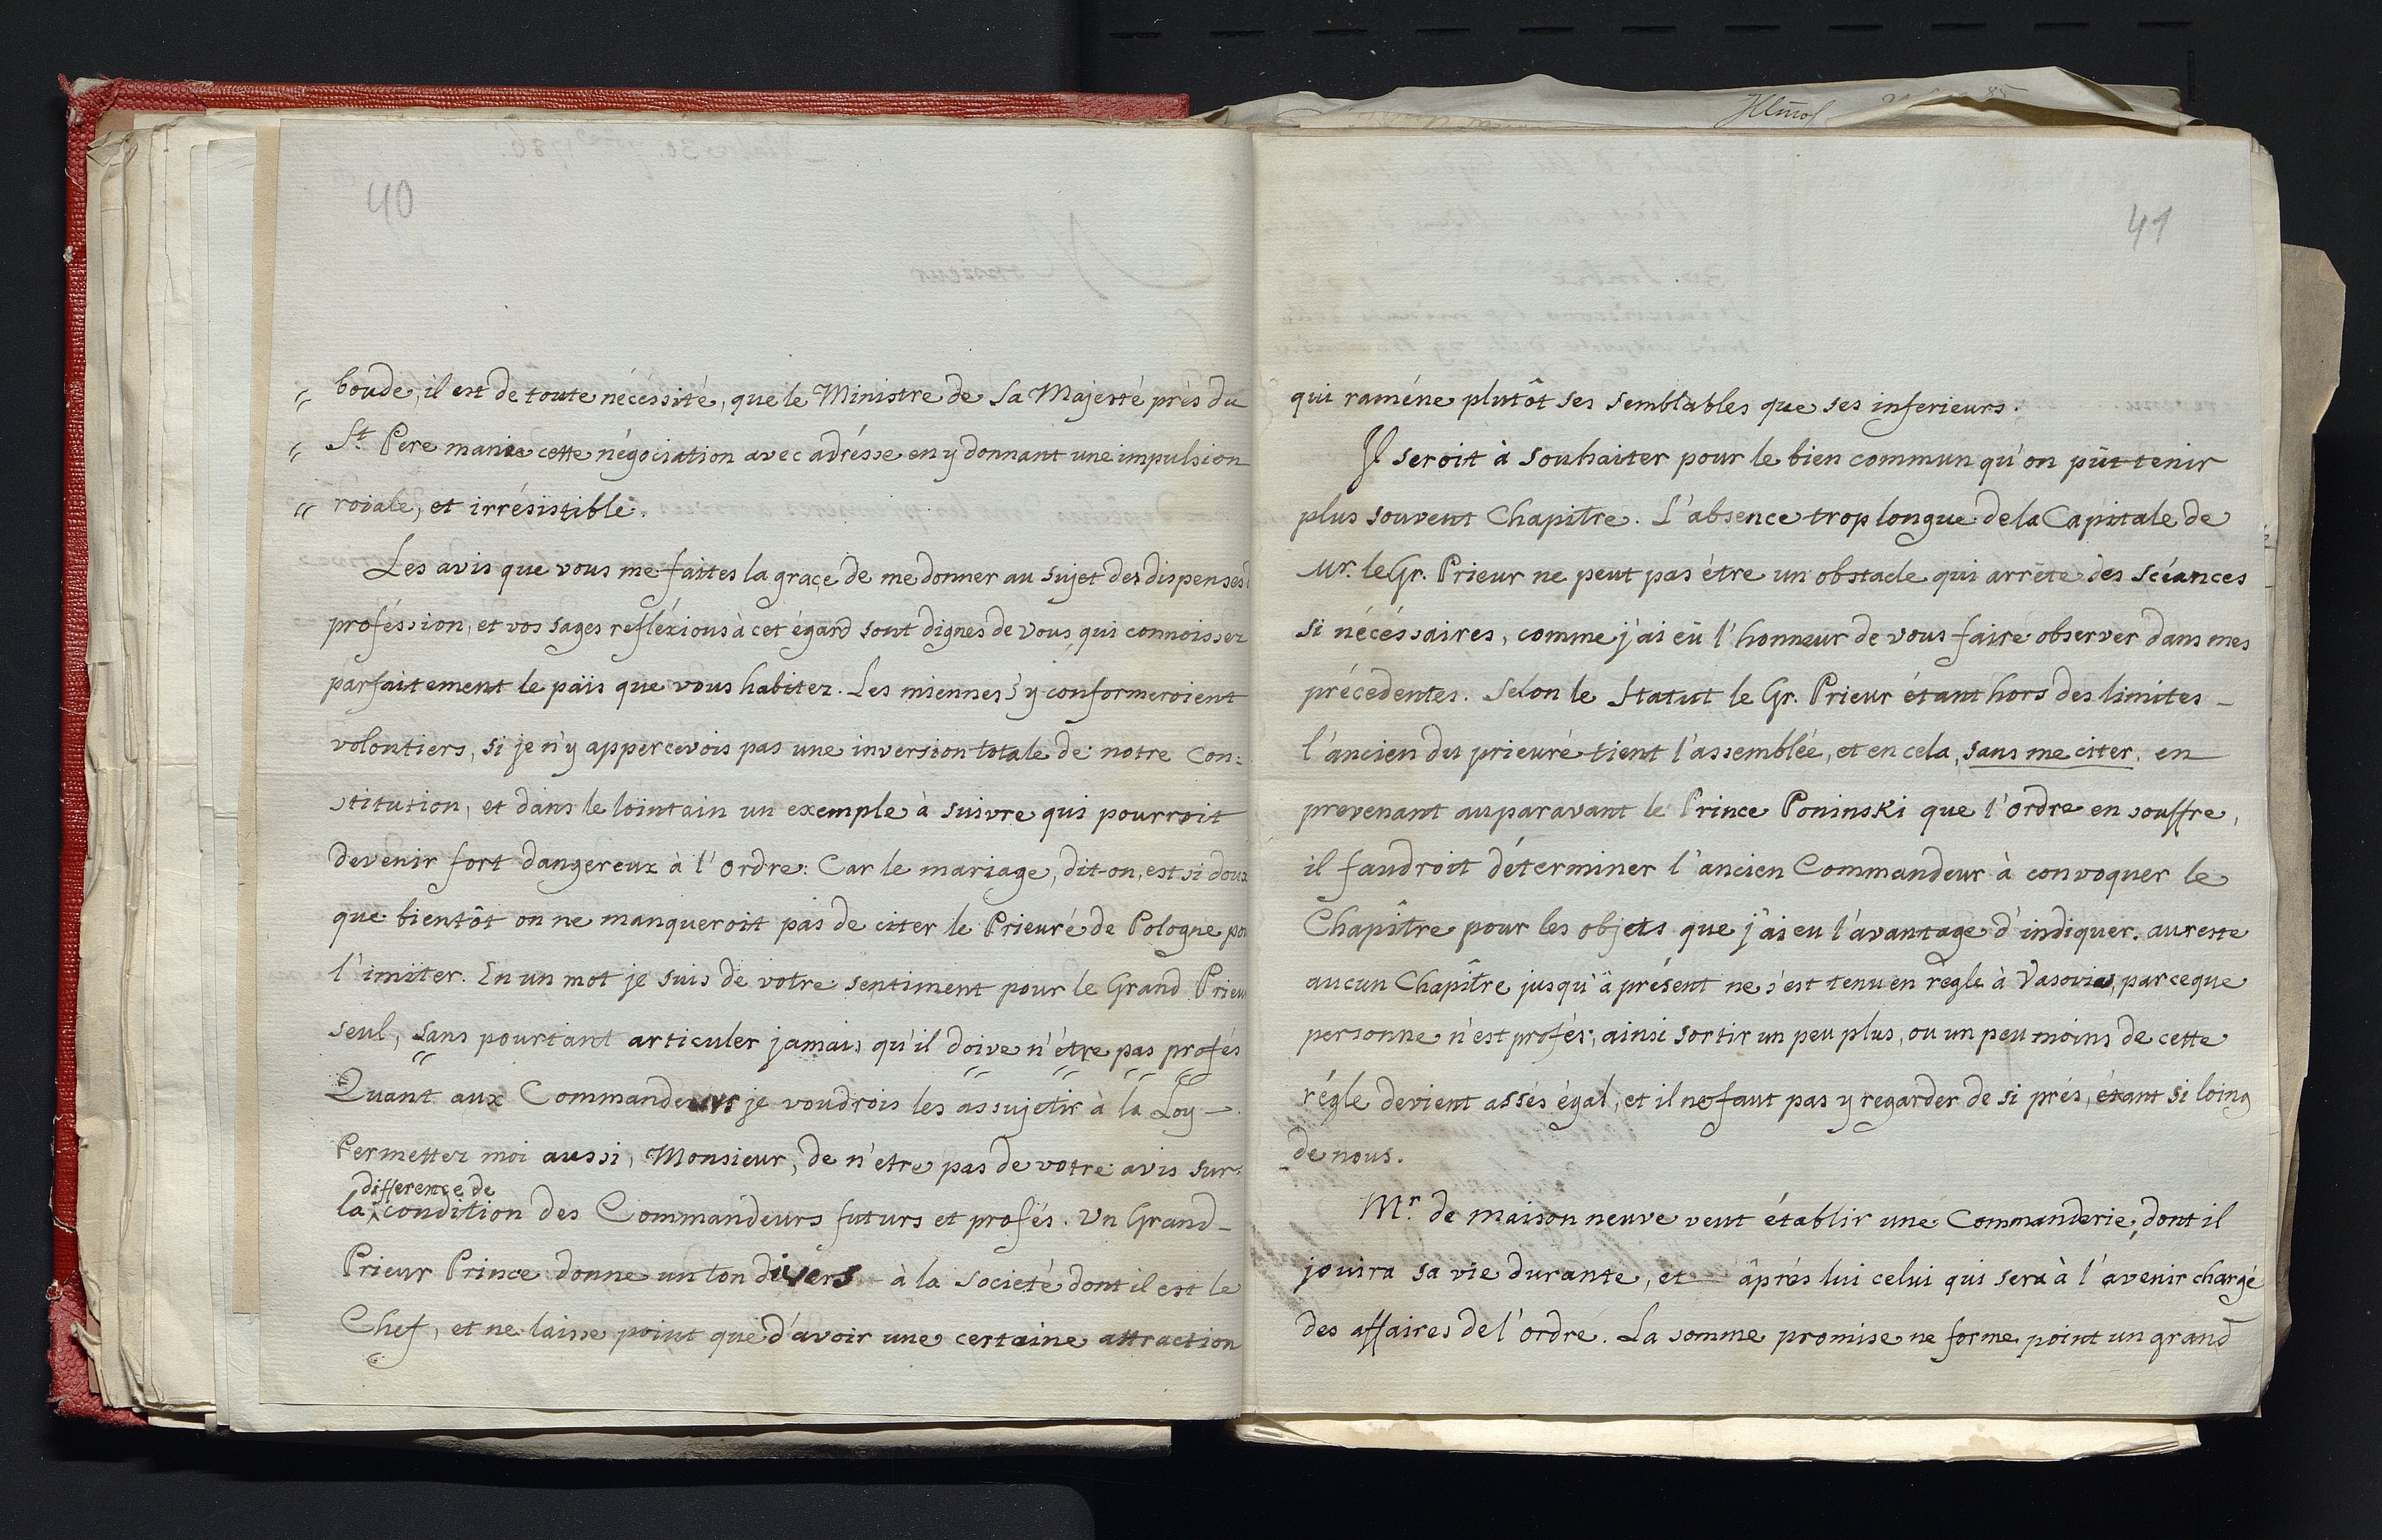 40
" boude, il est de toute nécéssité, que le Ministre de Sa Majesté près du
" St. Pere manie cette négociation avec adrésse en y donnant une impulsion
" roiale, et irrésistible.
Les avis que vous me faites la grace de me donner au sujet des dispenses
proféssion, et vos sages refléxions à cet égard sont dignes de Vous, qui connoissez
parfaitement le païs que vous habitez. Les miennes s'y conformeroient
volontiers, si je n'y appercevois pas une inversion totale de notre Con:
stitution, et dans le lointain un exemple à suivre qui pourroit
devenir fort dangereux à l'Ordre: Car le mariage, dit-on, est si doux
que bientôt on ne manqueroit pas de citer le Prieuré de Pologne po
l'imiter. En un mot je suis de votre sentiment pour le Grand Prieu
seul, sans pourtant articuler jamais qu'il doive n'étre pas profés
Quant aux Commandeurs je voudrois les assujetir à la Loy –.
Permettez moi aussi, Monsieur, de n'etre pas de votre avis sur
difference de
la condition des Commandeurs futurs et profés. Un Grand –
Prieur Prince donne un ton divers à la Societé dont il est le
Chef, et ne laisse point que d'avoir une certaine attraction
Hlmo/
41
qui raméne plutôt ses semblables que ses inferieurs.
Il seroit à souhaiter pour le bien commun qu'on pût tenir
plus souvent Chapître. L'absence trop longue de la Capitale de
Mr. le Gr. Prieur ne peut pas étre un obstacle qui arrête des scéances
si nécéssaires, comme j'ai eû l'honneur de vous faire observer dans mes
précedentes. Selon le Statut le Gr. Prieur étant hors des limites –
l'ancien du prieuré tient l'assemblée, et en cela, sans me citer, en
prevenant auparavant le Prince Poninski que l'Ordre en souffre,
il faudroit déterminer l'ancien Commandeur à convoquer le
Chapître pour les objets que j'ai eu l'avantage d'indiquer. au reste
aucun Chapître jusqu'à présent ne s'est tenu en regle à Vasovie, parceque
personne n'est profés; ainsi sortir un peu plus, ou un peu moins de cette
régle devient assés égal, et il ne faut pas y regarder de si prés, étant si loing
de nous.
Mr. de maison neuve veut établir une Commanderie, dont il
jouira sa vie durante, et après lui celui qui sera à l'avenir chargé
des affaires de l'ordre. La somme promise ne forme point un grand